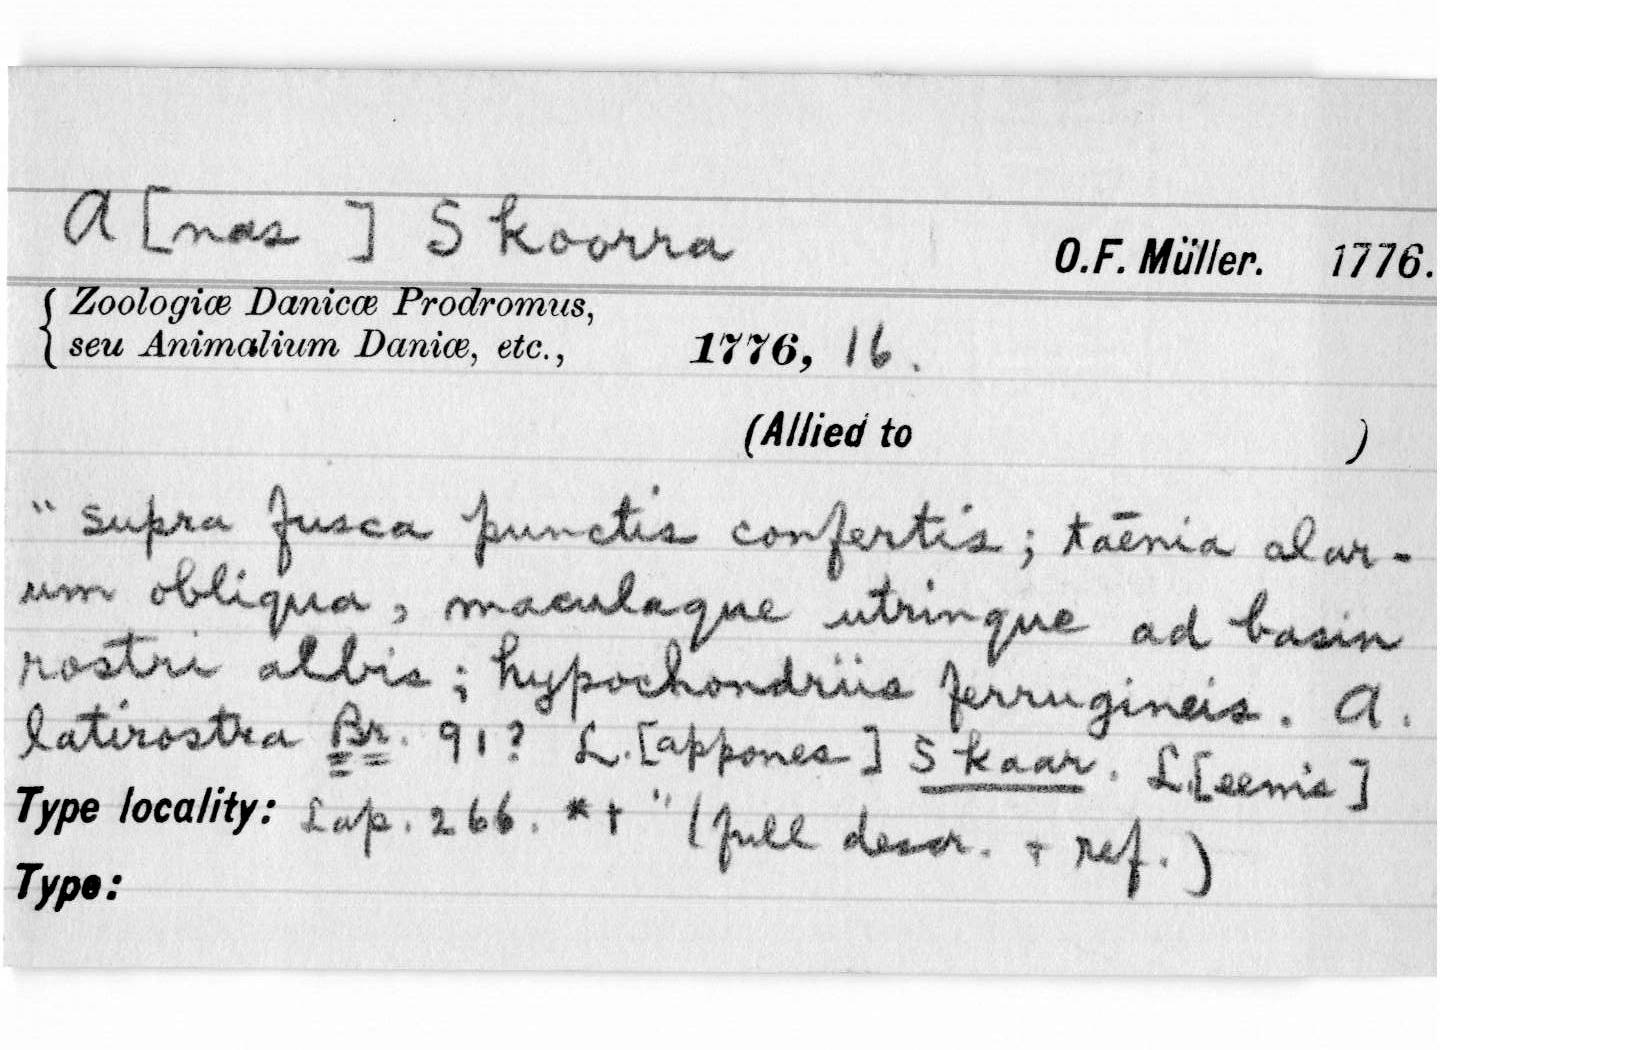 A[nas ] Skoorra O.F. Müller. 1776.
Zoologiæ Danicæ Prodromus,
seu Animalium Daniæ, etc., 1776, 16.
(Allied to )
"supra fusca punctis confertis; taēnia alar-
um obliqua, maculaque utrinque ad basin
rostri albis; hypochondriis ferrugineis. A.
latirostra Br. 91? L.[appones] Skaar. L[eemis]
Type locality: Lap. 266. *†" (full descr. + ref.)
Type: